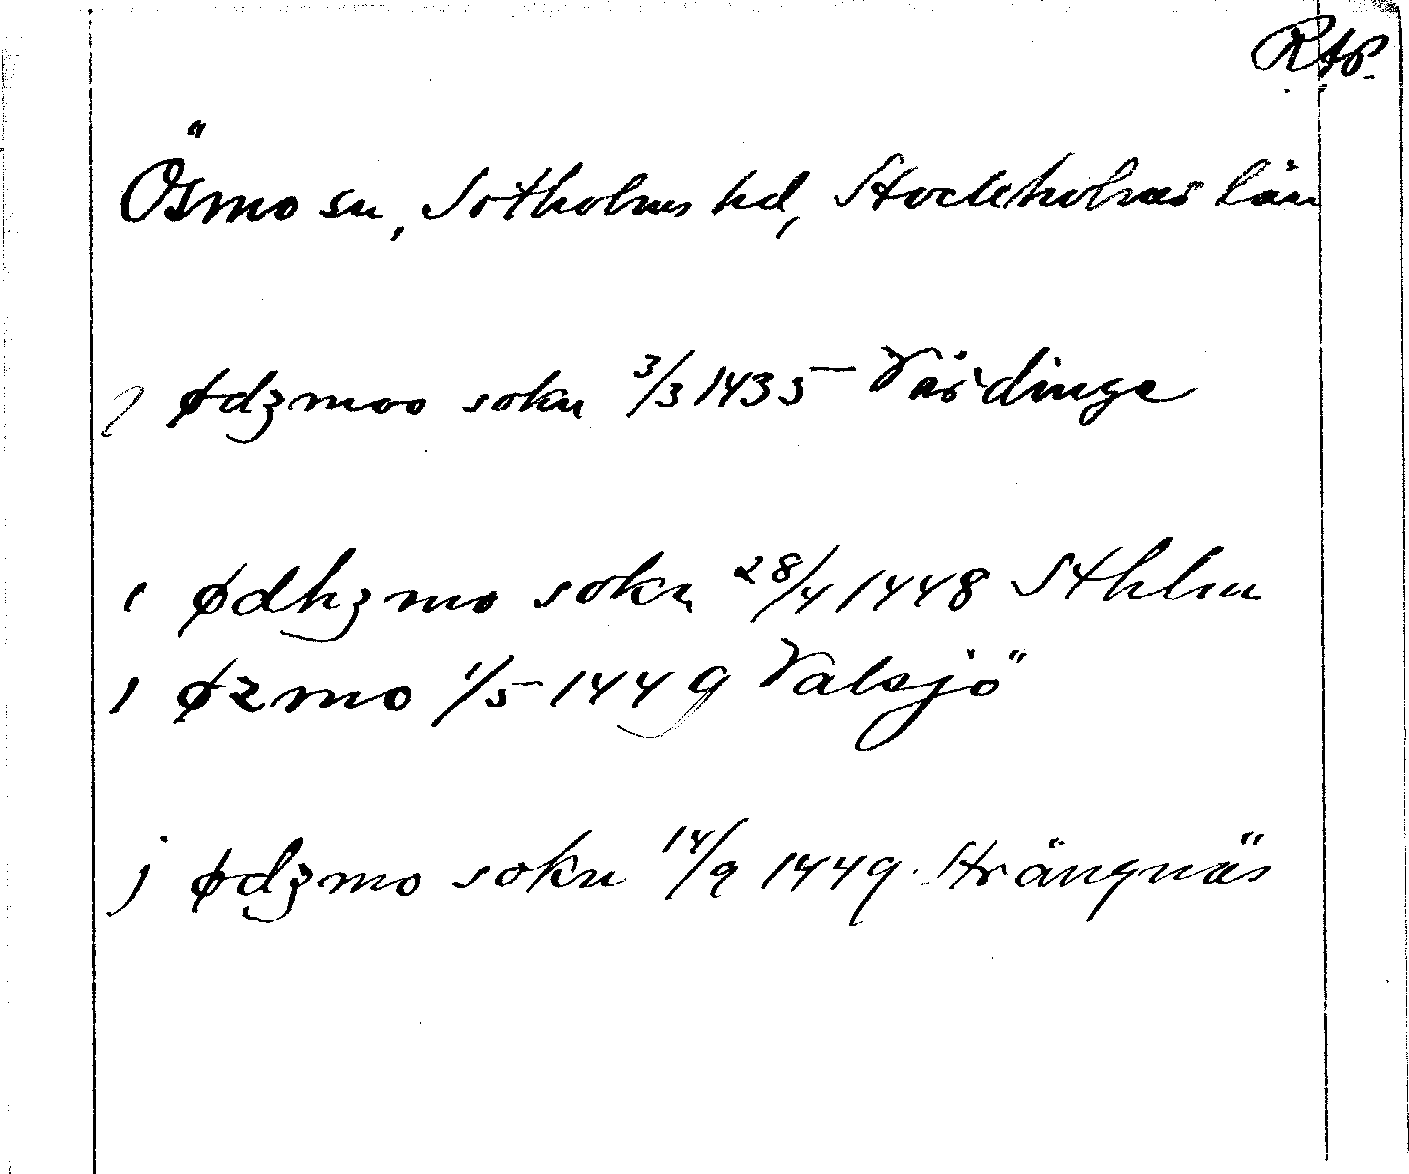 RAP.
Ösmo sn, Sotholms hd, Stockholms län
j ødzmoo sokn 3/3 1435 Vårdinge
i ødhzmo sokn 28/4 1448 Sthlm
i øzmo 1/5 1449 Valsjö
j ødzmo sokn 14/9 1449. Strängnäs